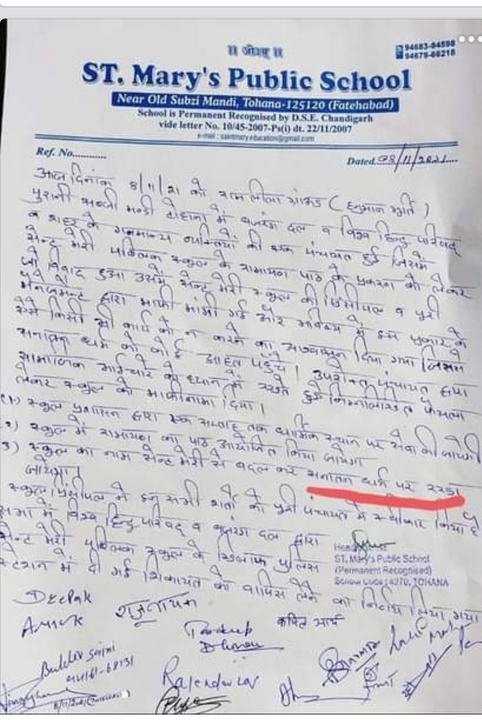 ॥ ओ३म् ॥
94683-94598
94679-66218
ST. Mary's Public School
Near Old Subzi Mandi, Tohana-125120 (Fatehabad)
School is Permanent Recognised by D.S.E. Chandigarh
vide letter No. 10/45-2007-Ps(i) dt. 22/11/2007
e-mail : saintmary.education@gmail.com
Ref. No............ Dated 08/11/2021
आज दिनांक 8/11/21 को रामलीला ग्राउंड (हनुमान मूर्ति)
पुरानी सब्जी मन्डी टोहाना में बजरंग दल व विश्व हिन्दू परिषद
व शहर के गणमान्य व्यक्तियों की एक पंचायत हुई जिसमें
सेन्ट मेरी पब्लिक स्कूल के रामायण पाठ के प्रकरण को लेकर
जो विवाद हुआ उसमें सेन्ट मेरी स्कूल की प्रिंसीपल व पूरी
मैनेजमेन्ट द्वारा माफी मांगी गई और भविष्य में इस प्रकार के
ऐसे किसी भी कार्य को न करने का आश्वासन दिया गया जिससे
सनातन धर्म को कोई आहत पहुँचे। उपरोक्त पंचायत द्वारा
सामाजिक भाईचारे को ध्यान में रखते हुए निम्नलिखित फैसला
लेकर स्कूल को माफीनामा दिया।
(1) स्कूल प्रशासन द्वारा एक सप्ताह तक धार्मिक स्थान पर सेवा की जायेगी
2) स्कूल में रामायण का पाठ आयोजित किया जायेगा
3) स्कूल का नाम सेन्ट मेरी से बदल कर सनातन धर्म पर रखा
जायेगा।
स्कूल प्रिंसीपल ने इन सभी शर्तों को पूरी पंचायत में स्वीकार किया है
सभा में विश्व हिन्दू परिषद व बजरंग दल द्वारा
सेन्ट मेरी पब्लिक स्कूल के खिलाफ पुलिस
स्टेशन में दी गई शिकायत को वापिस लेने का निर्णय लिया गया
ST. Mary's Public School
(Permanent Recognised)
School Code : 4370, TOHANA
Deepak
कपिल आर्य
Baldev Saini
Rajender